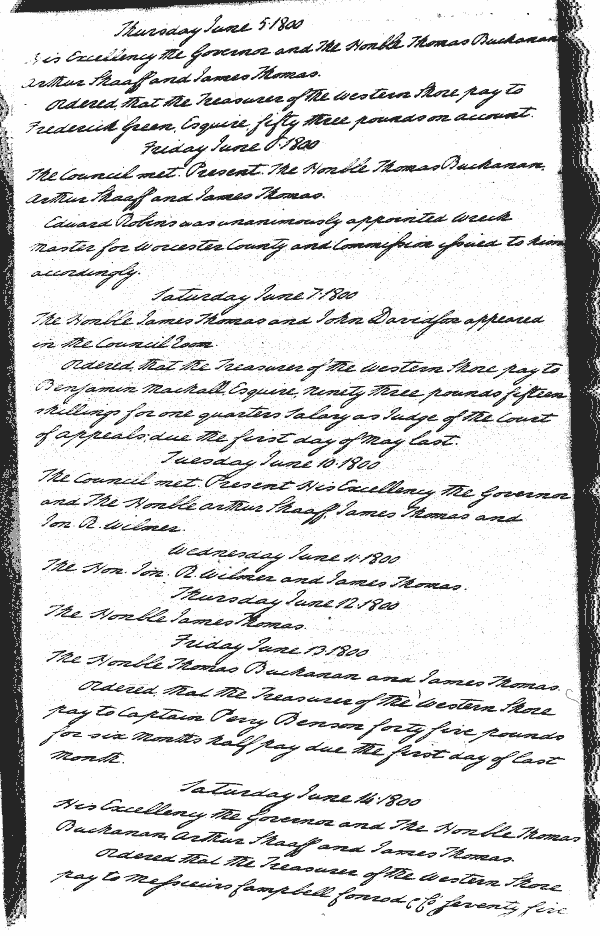 Thursday June 5. 1800
His Excellency the Governor and The Honble Thomas Buchanan
Arthur Shaaff and James Thomas.
Ordered, that the Treasurer of the Western Shore pay to
Frederick Green, Esquire, fifty three pounds on account.
Friday June 6. 1800
The Council met. Present. The Honble Thomas Buchanan,
Arthur Shaaff and James Thomas.
Edward Robins was unanimously appointed Wreck
Master for Worcester County and Commission issued to him
accordingly.
Saturday June 7. 1800
The Honble James Thomas and John Davidson appeared
in the Council Room.
Ordered, that the Treasurer of the Western Shore pay to
Benjamin Mackall, Esquire, ninety three pounds fifteen
shillings for one quarters Salary as Judge of the Court
of appeals, due the first day of May last.
Tuesday June 10. 1800
The Council met. Present His Excellency the Governor
and The Honble Arthur Shaaff, James Thomas and
Jon. R. Wilmer.
Wednesday June 11. 1800
The Hon. Jon. R. Wilmer and James Thomas.
Thursday June 12. 1800
The Honble James Thomas.
Friday June 13. 1800
The Honble Thomas Buchanan and James Thomas
Ordered, that the Treasurer of the Western Shore
pay to Captain Perry Benson forty five pounds
for six months half pay due the first day of last
month.
Saturday June 14. 1800
His Excellency the Governor and The Honble Thomas
Buchanan, Arthur Shaaff and James Thomas.
Ordered that the Treasurer of the Western Shore
pay to Messieurs Campbell Conrod & Co. seventy five